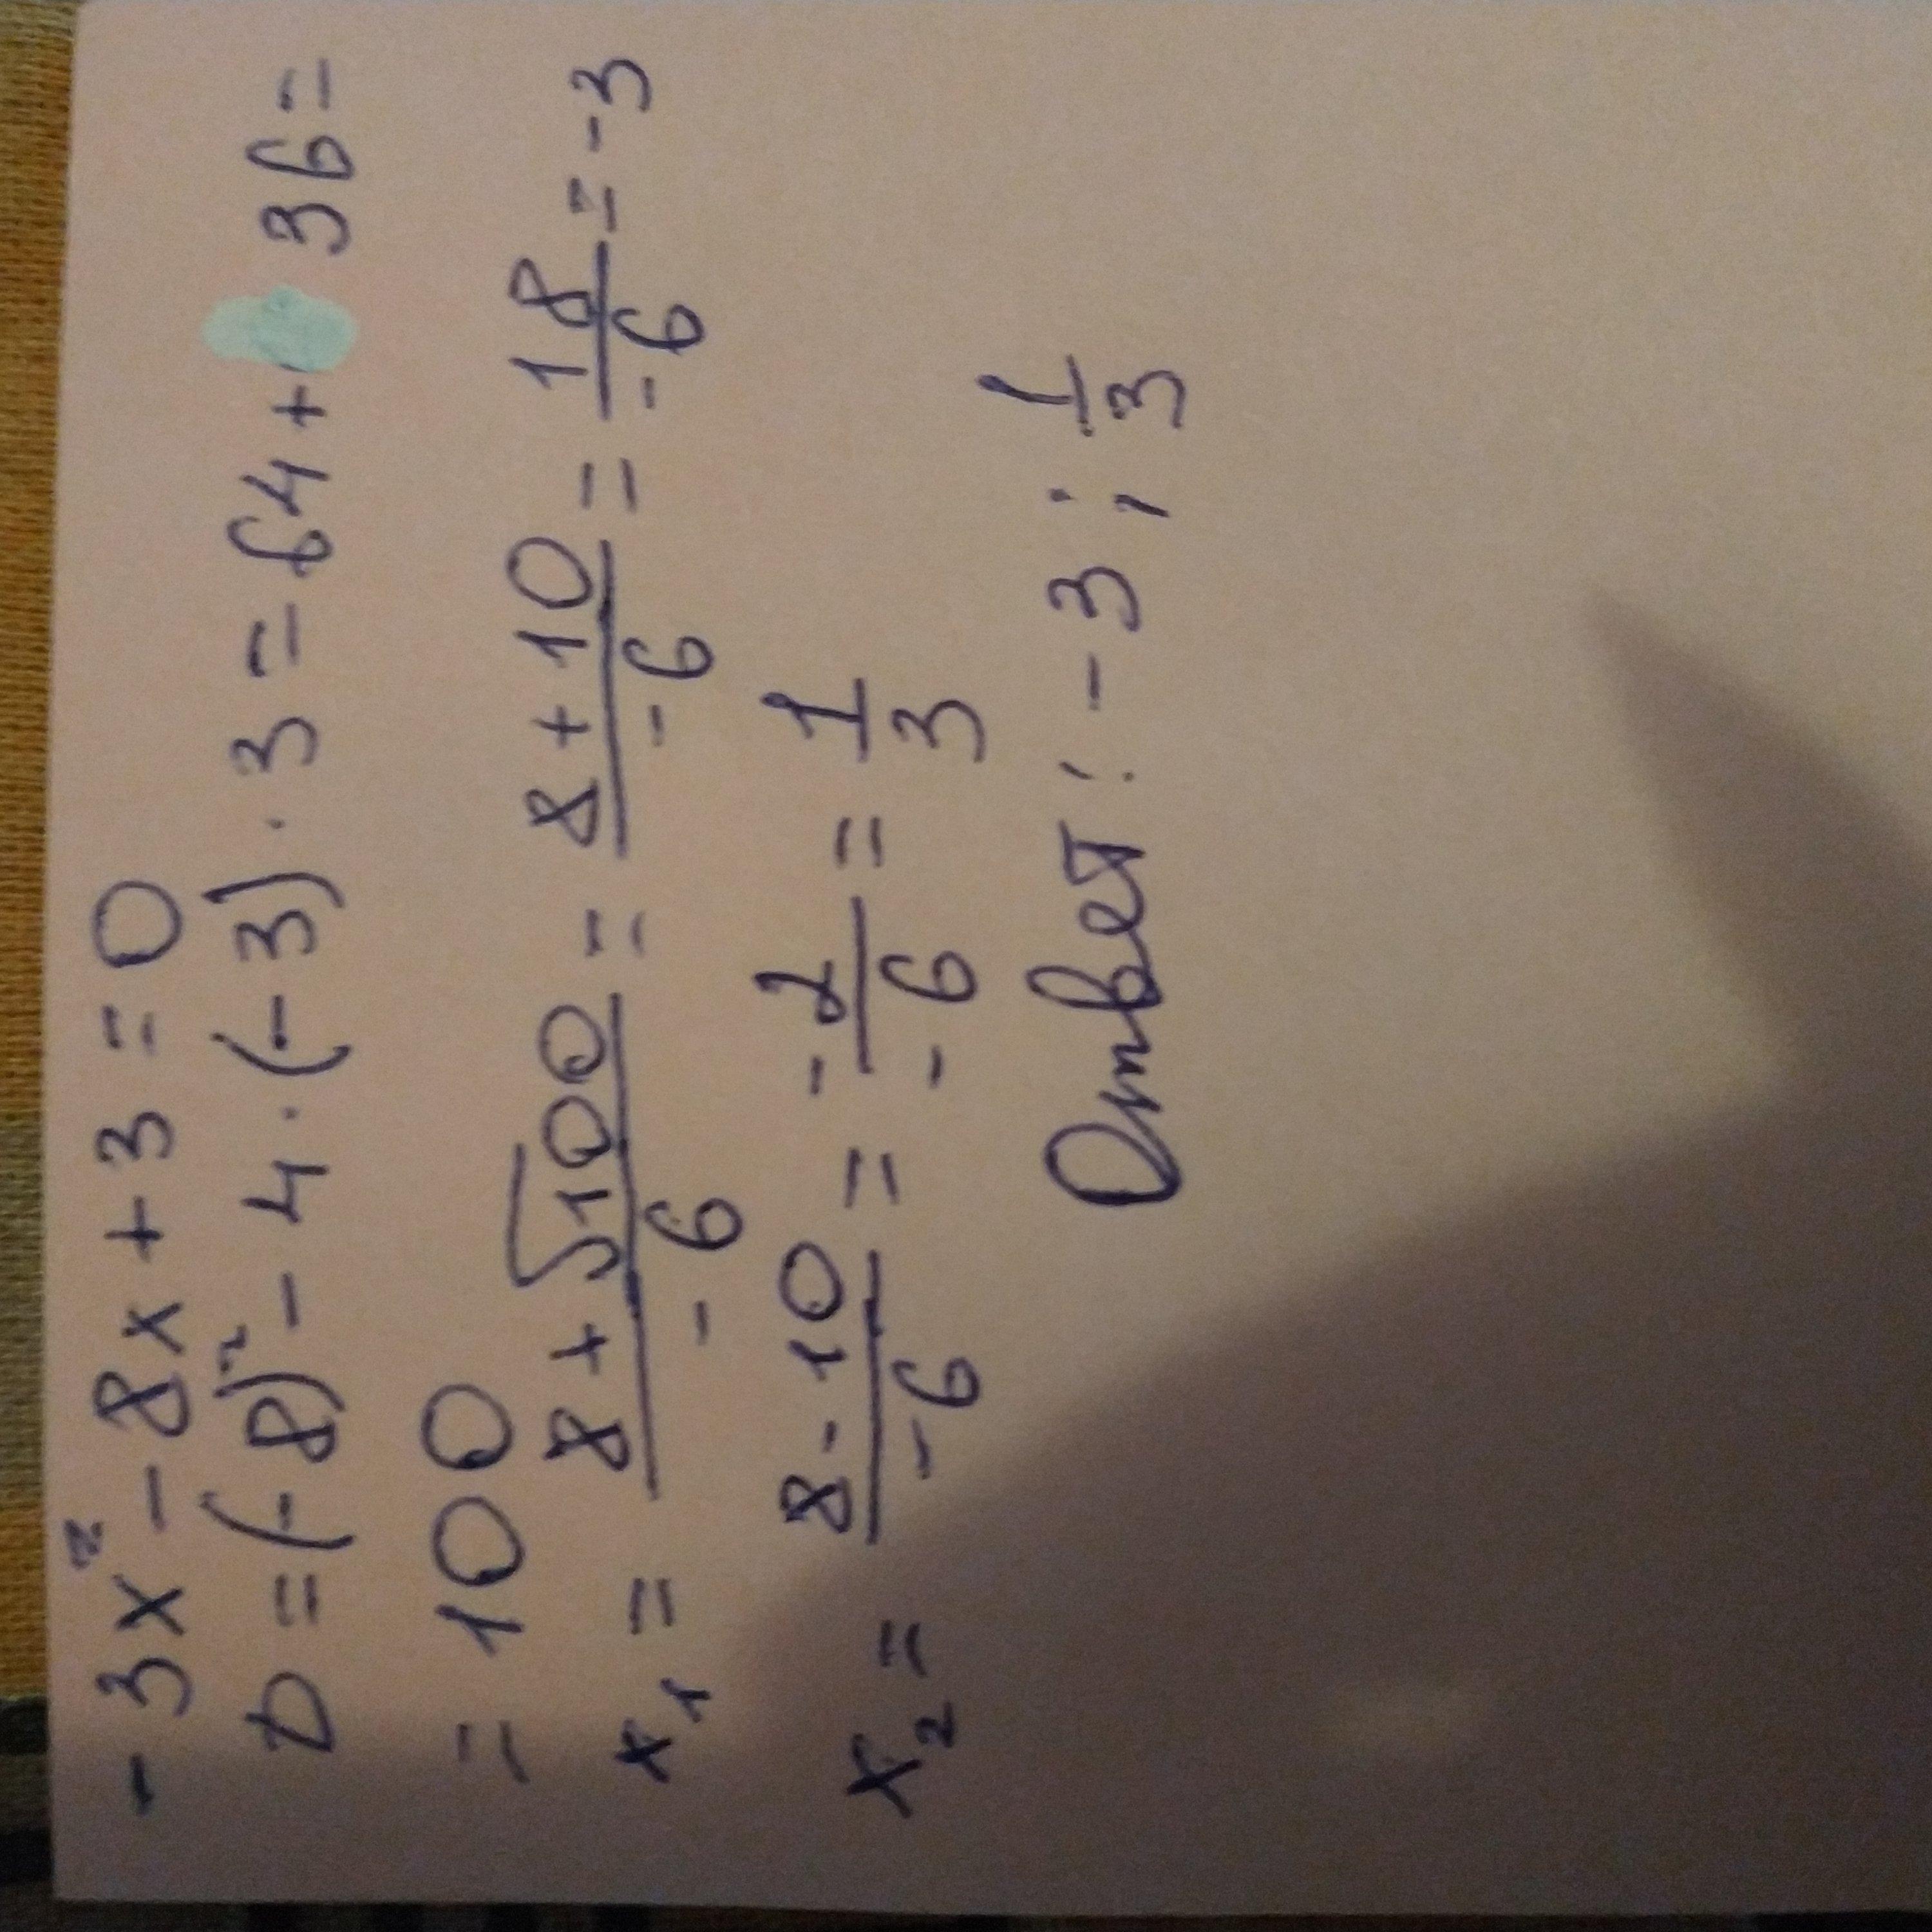 -3x² - 8x + 3 = 0
D = (-8)² - 4 · (-3) · 3 = 64 + 36 =
= 100
x₁ = (8 + √100)/(-6) = (8 + 10)/(-6) = 18/(-6) = -3
x₂ = (8 - 10)/(-6) = (-2)/(-6) = 1/3
Ответ: -3; 1/3